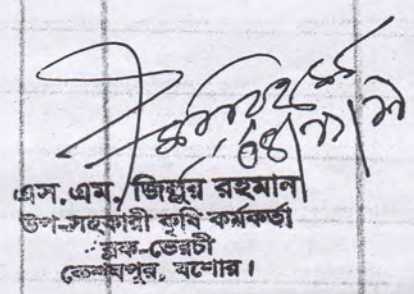 এস.এম. জিল্লুর রহমান
উপ-সহকারী কৃষি কর্মকর্তা
ব্লক-ভেরচী
কেশবপুর, যশোর।